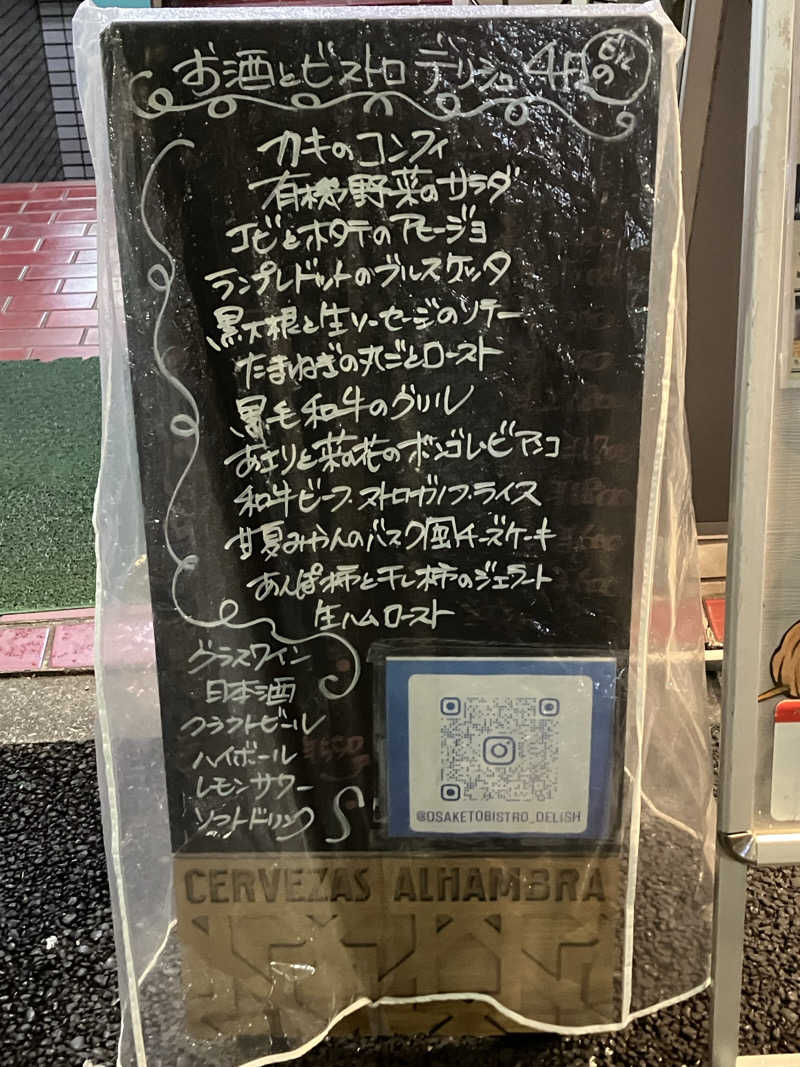 お酒とビストロ デリシュ 4F
カキのコンフィ
有機野菜のサラダ
エビとホタテのアヒージョ
ランプレドットのブルスケッタ
黒大根と生ソーセージのソテー
たまねぎの丸ごとロースト
黒毛和牛のグリル
あさりと菜の花のボンゴレビアンコ
和牛ビーフ・ストロガノフ・ライス
甘夏みかんのバスク風チーズケーキ
あんぽ柿と干し柿のジェラート
生ハムロースト
グラスワイン
日本酒
クラフトビール
ハイボール
レモンサワー
ソフトドリンク
@OSAKETOBISTRO_DELISH
CERVEZAS ALHAMBRA